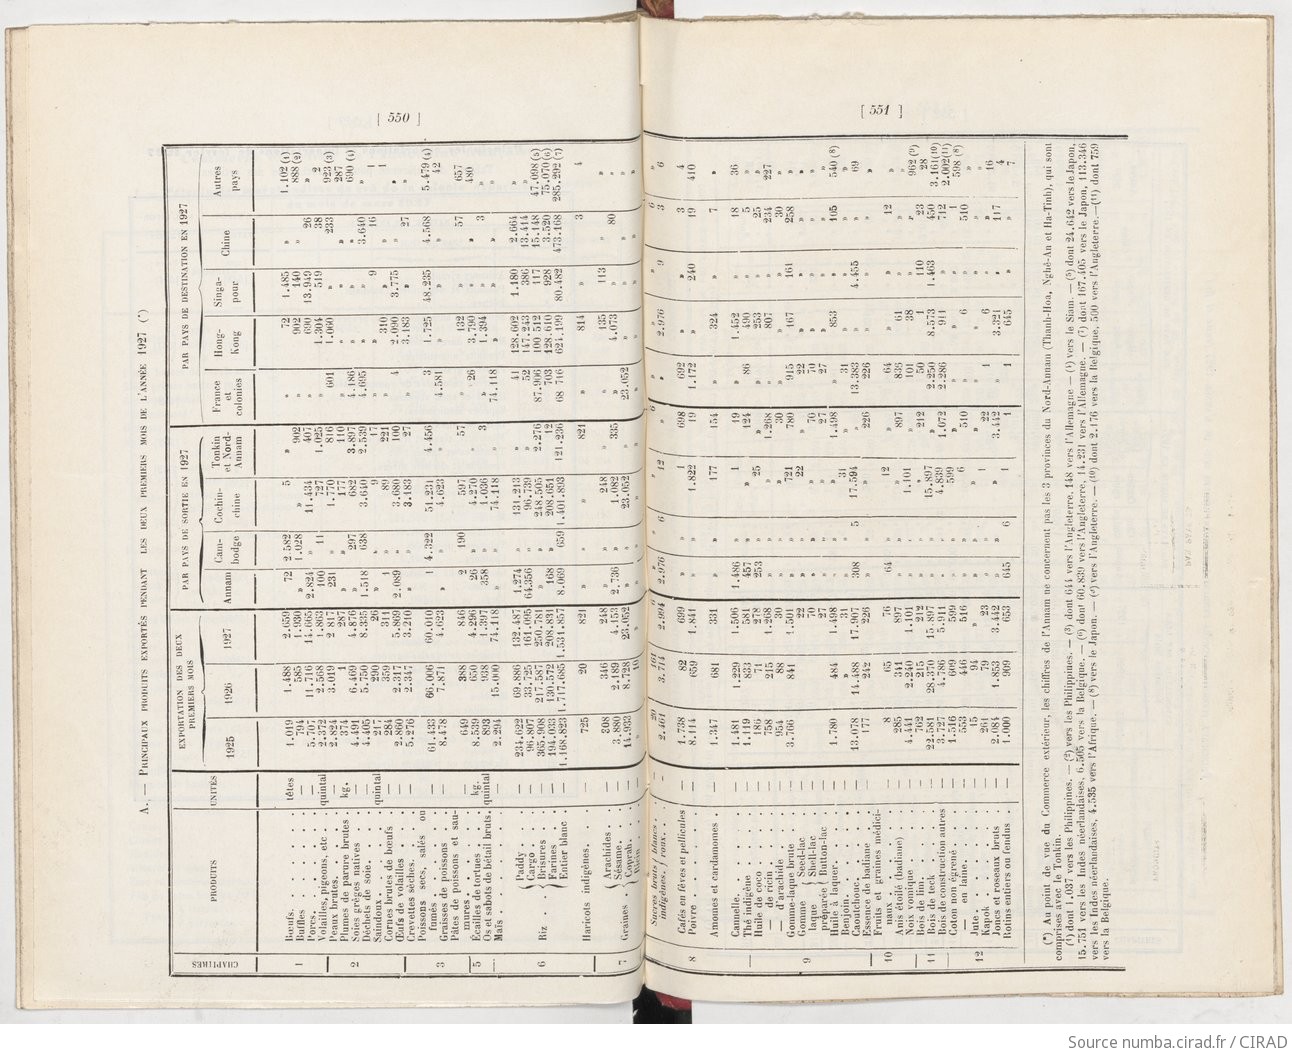 [ 550 ]
[ 551 ]
A. — PRINCIPAUX PRODUITS EXPORTÉS PENDANT LES DEUX PREMIERS MOIS DE L'ANNÉE 1927 (*)
CHAPITRES
PRODUITS
UNITÉS
EXPORTATION DES DEUX PREMIERS MOIS
1925 1926 1927
PAR PAYS DE SORTIE EN 1927
Annam Cambodge Cochinchine Tonkin et Nord-Annam
PAR PAYS DE DESTINATION EN 1927
France et colonies Hong-Kong Singapour Chine Autres pays
Bœufs. têtes 1.019 1.488 2.659 72 2.582 5 » » 72 1.485 » 1.102 (1)
Buffles — 794 585 1.930 » 1.028 » 902 » 902 140 » 888 (2)
Porcs. — 5.707 11.716 14.665 2.824 » 11.434 407 » 690 13.949 26 »
Volailles, pigeons, etc quintal 2.372 2.568 1.863 100 11 727 1.025 » 1.304 519 38 2
Peaux brutes. — 2.824 3.019 2.817 231 » 1.770 816 601 1.060 » 233 923 (3)
Plumes de parure brutes. kg. 374 1 287 » » 177 110 » » » » 287
Soies grèges natives — 4.491 6.469 4.876 » 297 682 3.897 4.186 » » » 690 (4)
Déchets de soie. — 4.405 5.750 8.335 1.518 638 3.640 2.539 4.695 » » 3.640 »
Saindoux quintal 217 290 26 » » 9 17 » » 9 16 1
Cornes brutes de bœufs — 284 359 311 » » 89 221 » 310 » » 1
Œufs de volailles — 2.860 2.317 5.869 2.089 » 3.680 100 4 2.090 3.775 » »
Crevettes sèches. — 5.276 2.347 3.210 » » 3.183 27 » 3.183 » 27 »
Poissons secs, salés ou fumés — 61.433 66.006 60.010 1 4.322 51.231 4.456 3 1.725 48.235 4.568 5.479 (4)
Graisses de poissons — 8.478 7.871 4.623 » » 4.623 » 4.581 » » » 42
Pâtes de poissons et saumures. — 649 388 846 2 190 597 57 » 132 » 57 657
Écailles de tortues kg. 8.539 650 4.296 26 » 4.270 » 26 3.790 » » 480
Os et sabots de bétail bruts. quintal 893 938 1.397 358 » 1.036 3 » 1.394 » 3 »
Maïs — 2.294 15.000 74.118 » » 74.118 » 74.118 » » » »
Riz
Paddy — 234.622 69.886 132.487 1.274 » 131.213 » 41 128.602 1.180 2.664 »
Cargo — 96.807 33.725 161.095 64.356 » 96.739 » 52 147.243 386 13.414 »
Brisures — 365.908 217.587 250.781 » » 248.505 2.276 87.906 100.512 117 15.148 47.098 (5)
Farines — 194.033 130.572 208.831 168 » 208.651 12 703 128.610 928 3.520 75.070 (6)
Entier blanc — 1.168.823 1.717.685 1.531.857 8.069 659 1.401.893 121.236 68.716 624.199 80.482 473.168 285.292 (7)
Haricots indigènes. — 725 20 821 » » » 821 » 814 » 3 4
Graines
Arachides — 308 346 248 » » 248 » » 135 113 » »
Sésame. — 3.880 2.189 4.153 2.736 » 1.082 335 » 4.073 » 80 »
Coprah. — 14.933 8.728 23.052 » » 23.052 » 23.052 » » » »
Sucres indigènes. bruts blancs. — 20 161 6 » 6 » » 6
roux. — 2.461 3.714 2.994 2.976 6 12 » » 2.976 9 3 6
Cafés en fèves et pellicules — 1.738 82 699 » » 1 698 692 » » 3 4
Poivre — 8.114 659 1.841 » » 1.822 19 1.172 » 240 19 410
Amomes et cardamomes — 1.347 681 331 » » 177 154 » 324 » 7 »
Cannelle. — 1.481 1.229 1.506 1.486 » 1 19 » 1.452 » 18 36
Thé indigène — 1.119 833 581 457 » » 124 86 490 » 5 »
Huile de coco — 186 71 278 253 » 25 » » 253 » 25 »
— de ricin — 758 215 1.268 » » » 1.268 » 807 » 234 227
— d'arachide — 954 88 30 » » » 30 » » » 30 »
Gomme-laque brute — 3.766 841 1.501 » » 721 780 915 167 161 258 »
Gomme laque préparée
Shed-lac — 22 » » 22 » 22 » » » »
Shell-lac — 70 » » » 70 70 » » » »
Button-lac — 27 » » » 27 27 » » » »
Huile à laquer. — 1.780 484 1.498 » » » 1.498 » 853 » 105 540 (8)
Benjoin. — » » 31 » » 31 » 31 » » » »
Caoutchouc. — 13.078 14.488 17.907 308 5 17.594 » 13.383 » 4.455 » 69
Essence de badiane — 177 242 226 » » » 226 226 » » » »
Fruits et graines médicinaux — 8 65 76 64 » 12 » 64 » » 12 »
Anis étoilé (badiane) — 285 41 897 » » » 897 836 61 » » »
Noix vomique — 4.441 2.240 1.101 » » 1.101 » 101 38 » » 962 (9)
Bois de lim. — 762 215 212 » » » 212 50 1 110 23 28
Bois de teck — 22.581 28.370 15.897 » » 15.897 » 2.250 8.573 1.463 450 3.161 (10)
Bois de construction autres — 3.727 4.786 5.911 » » 4.839 1.072 2.286 911 » 712 2.002 (11)
Coton non égrené. — 1.516 609 599 » » 599 » » » » 1 598 (8)
— en laine. — 553 446 516 » » 6 510 » 6 » 510 »
Jute. — 15 94 » » » » » » » » » »
Kapok — 261 79 23 » » 1 22 1 6 » » 16
Joncs et roseaux bruts — 2.084 1.853 3.442 » » » 3.442 » 3.321 » 117 4
Rotins entiers ou fendus — 1.000 909 653 645 6 1 1 1 645 » » 7
(*) Au point de vue du Commerce extérieur, les chiffres de l'Annam ne concernent pas les 3 provinces du Nord-Annam (Thanh-Hoa, Nghê-An et Ha-Tinh), qui sont
comprises avec le Tonkin.
(1) dont 1.037 vers les Philippines. — (2) vers les Philippines. — (3) dont 644 vers l'Angleterre, 148 vers l'Allemagne — (4) vers le Siam. — (5) dont 24.642 vers le Japon,
15.751 vers les Indes néerlandaises, 6.505 vers la Belgique. — (6) dont 60.839 vers l'Angleterre, 14.231 vers l'Allemagne. — (7) dont 167.405 vers le Japon, 113.346
vers les Indes néerlandaises, 4.535 vers l'Afrique. — (8) vers le Japon. — (9) vers l'Angleterre. — (10) dont 2.176 vers la Belgique, 500 vers l'Angleterre. — (11) dont 759
vers la Belgique.
Source numba.cirad.fr / CIRAD